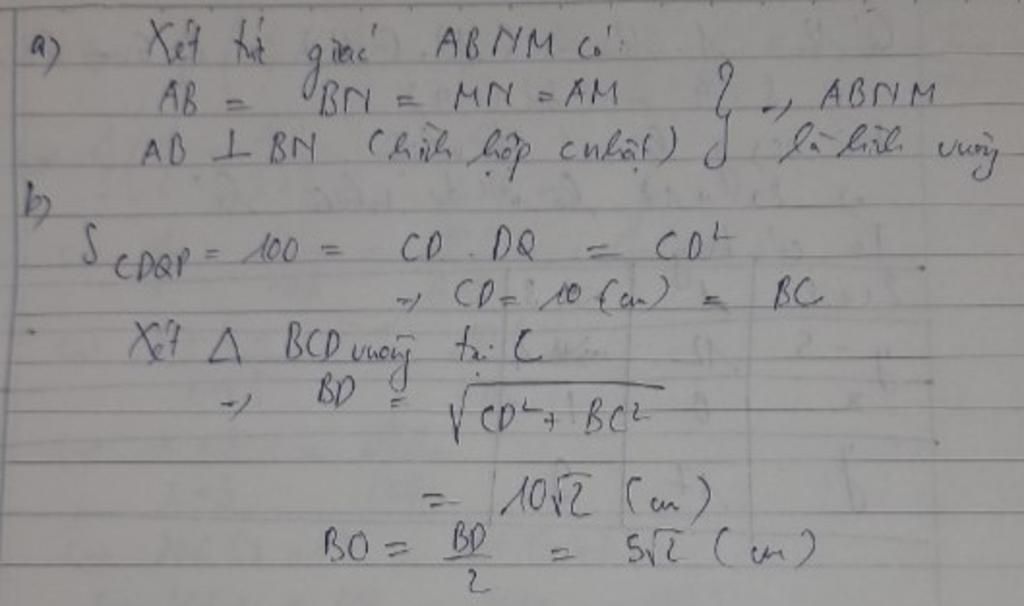 a) Xét tứ giác ABNM có:
AB = BN = MN = AM } → ABNM
AB ⊥ BN (hình hộp cnhật) là hình vuông
b)
S CDQP = 100 = CD . DQ = CD²
→ CD = 10 (cm) = BC
Xét Δ BCD vuông tại C
→ BD = √(CD² + BC²)
= 10√2 (cm)
BO = BD/2 = 5√2 (cm)